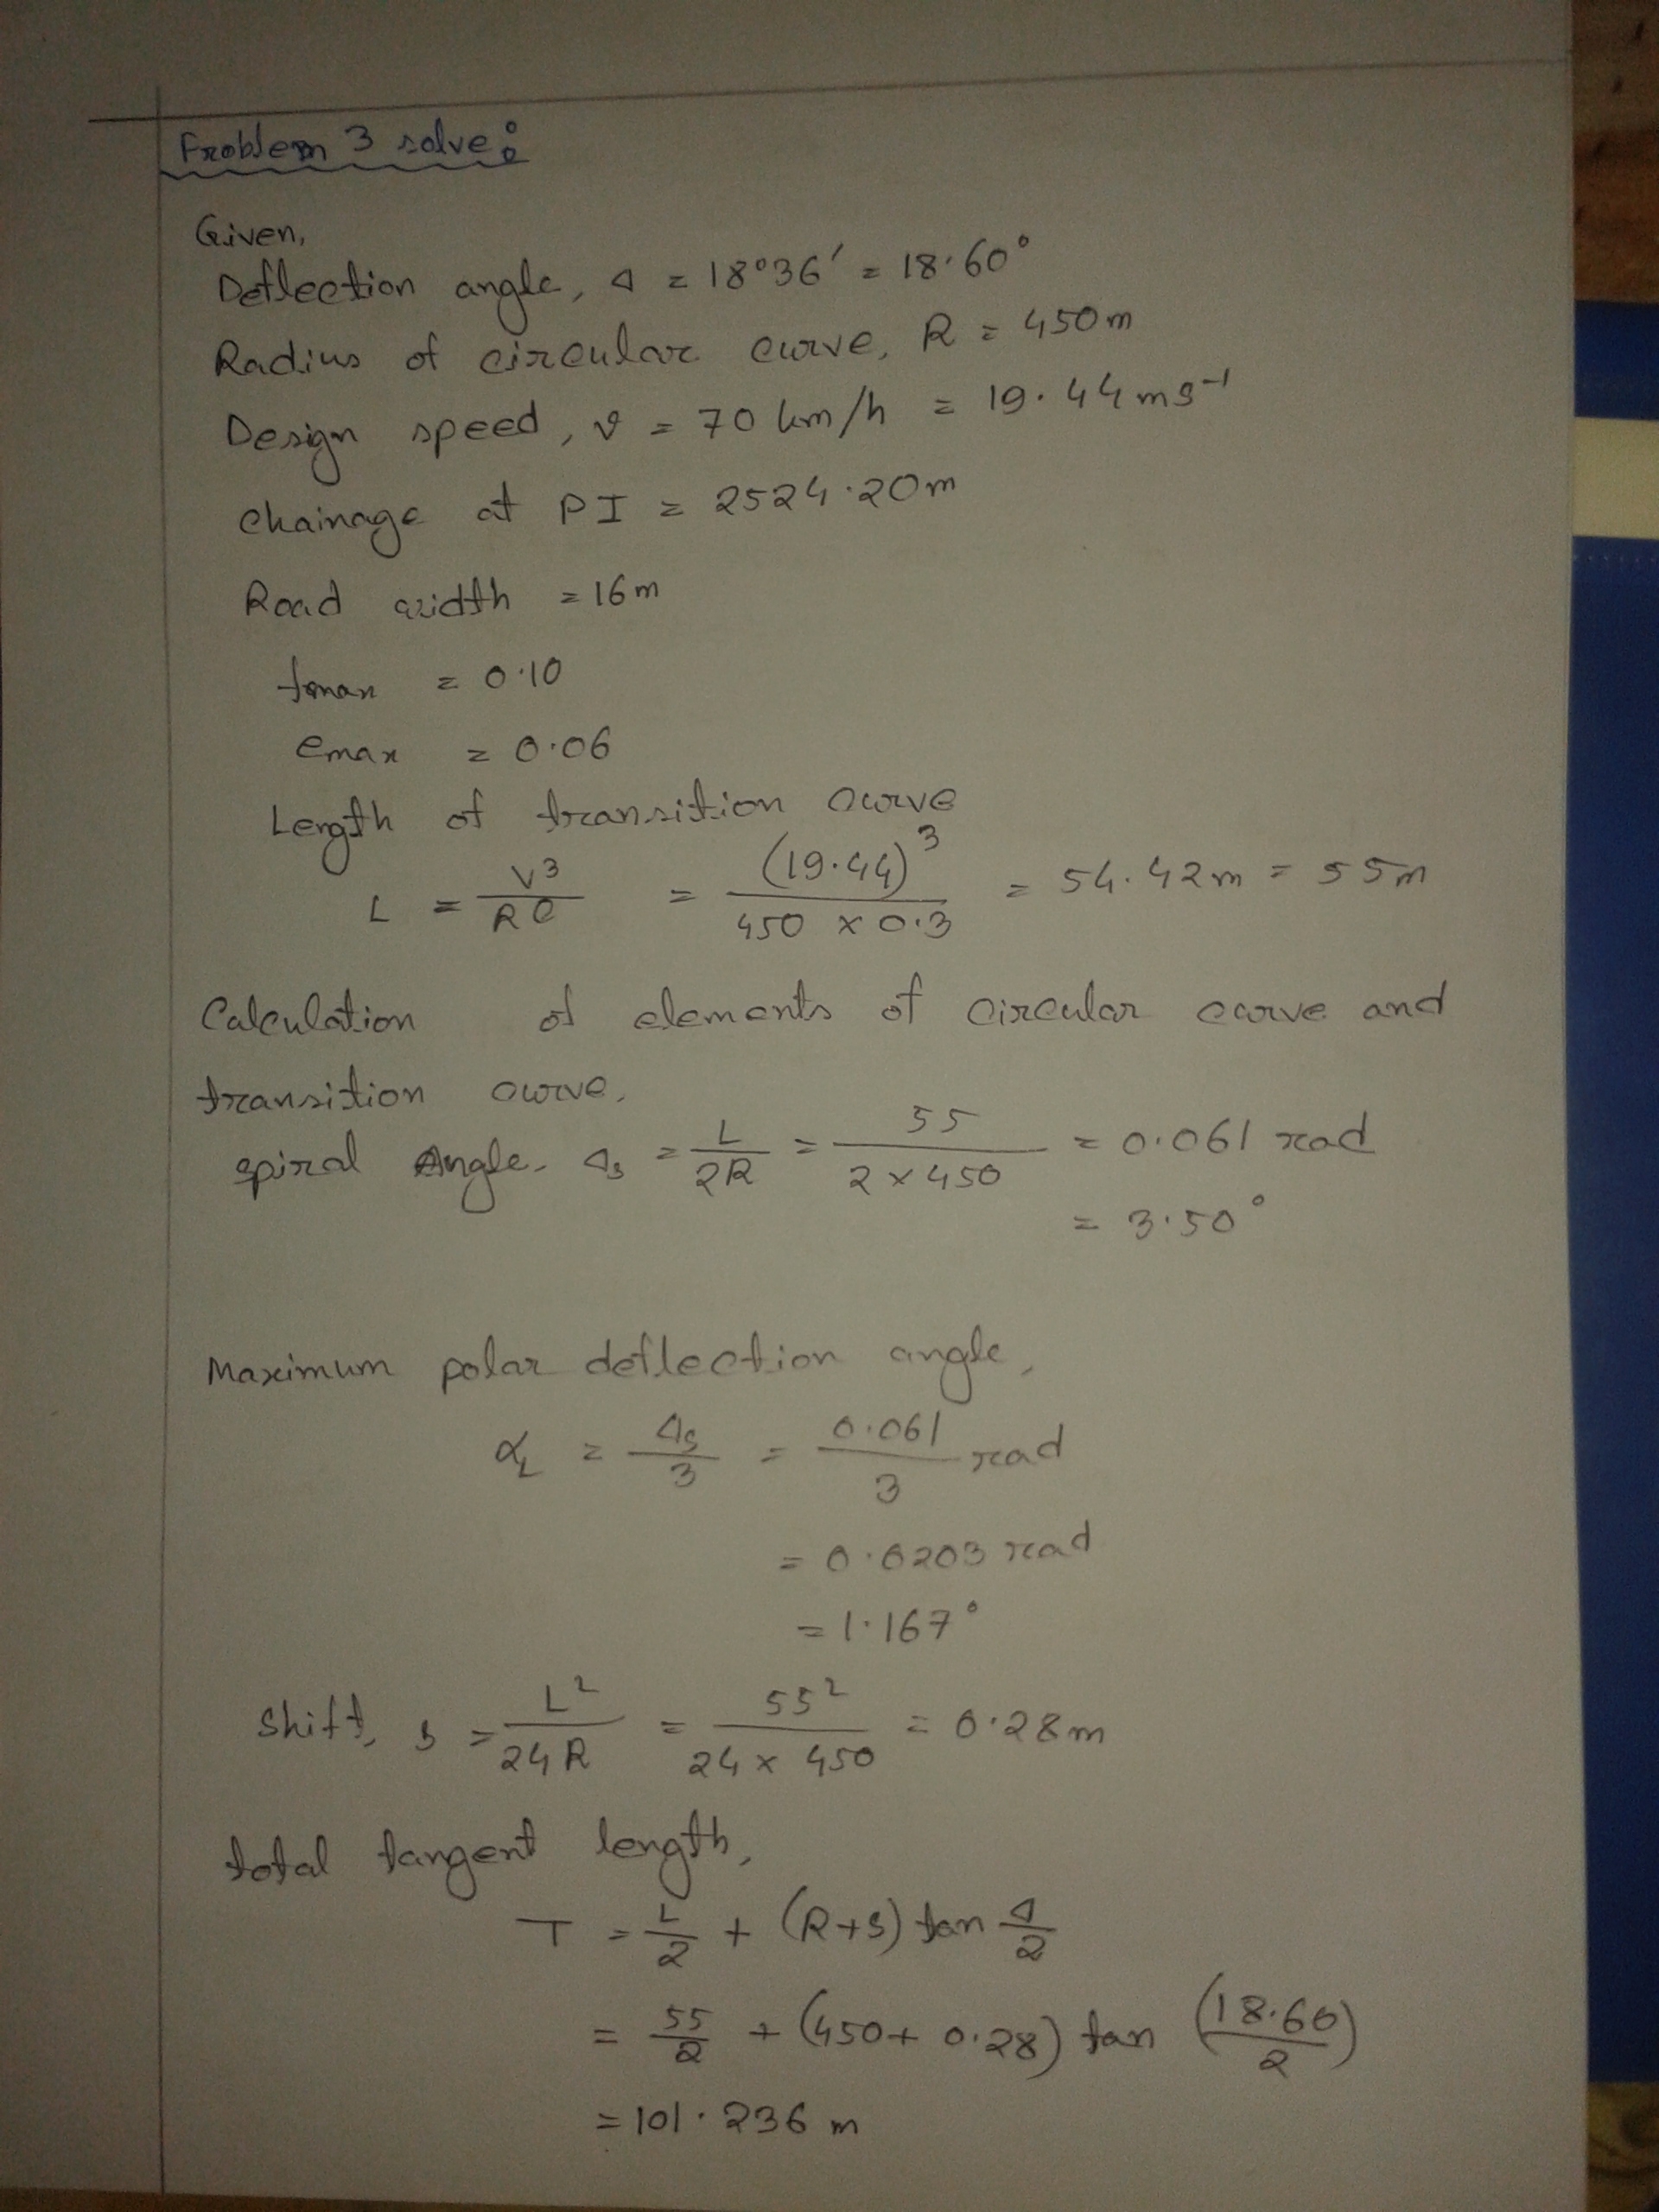 Problem 3 solve:
Given,
Deflection angle, Δ = 18°36′ = 18.60°
Radius of circular curve, R = 450m
Design speed, v = 70 km/h = 19.44 ms⁻¹
chainage at PI = 2524.20m
Road width = 16m
fmax = 0.10
emax = 0.06
Length of transition curve
L = V³/RC = (19.44)³/(450 × 0.3) = 54.42m = 55m
Calculation of elements of circular curve and
transition curve,
spiral Angle, Δs = L/2R = 55/(2 × 450) = 0.061 rad
= 3.50°
Maximum polar deflection angle,
α_L = Δs/3 = 0.061/3 rad
= 0.0203 rad
= 1.167°
Shift, s = L²/24R = 55²/(24 × 450) = 0.28m
total tangent length,
T = L/2 + (R+s) tan Δ/2
= 55/2 + (450 + 0.28) tan (18.60/2)
= 101.236 m